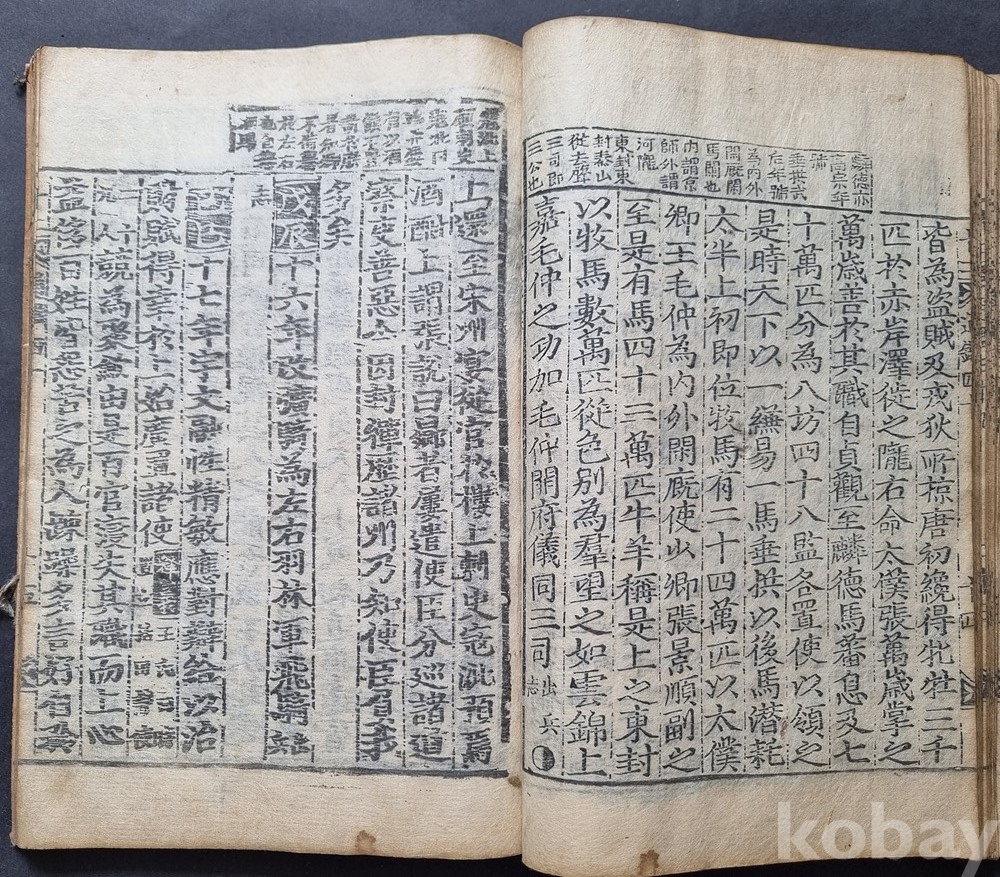 麟德亦
高宗年
號
垂拱武
后年號
為內外
閑廐閑
馬闌也
內謂京
師外謂
河隴
東封東
封泰山
從去聲
三司即
三公也
皆為盜賊及戎狄所掠唐初纔得牝牡三千
匹於赤岸澤徙之隴右命太僕張萬歲掌之
萬歲善於其職自貞觀至麟德馬蕃息及七
十萬匹分為八坊四十八監各置使以領之
是時天下以一縑易一馬垂拱以後馬潛耗
太半上初即位牧馬有二十四萬匹以太僕
卿王毛仲為內外閑廐使少卿張景順副之
至是有馬四十三萬匹牛羊稱是上之東封
以牧馬數萬匹從色別為羣望之如雲錦上
嘉毛仲之功加毛仲開府儀同三司 出兵志
上還至宋州宴從官於樓上刺史寇泚預焉
酒酣上謂張說曰曏者屢遣使臣分巡諸道
察吏善惡今因封禪歷諸州乃知使臣負我
多矣
戊辰十六年改彍騎為左右羽林軍飛騎
志
己巳十七年宇文融性精敏應對辯給以治
財賦得幸於上始廣置諸使
競為聚斂由是百官寖失其職而上心
益侈百姓皆怨苦之為人疎躁多言好自矜
kobay